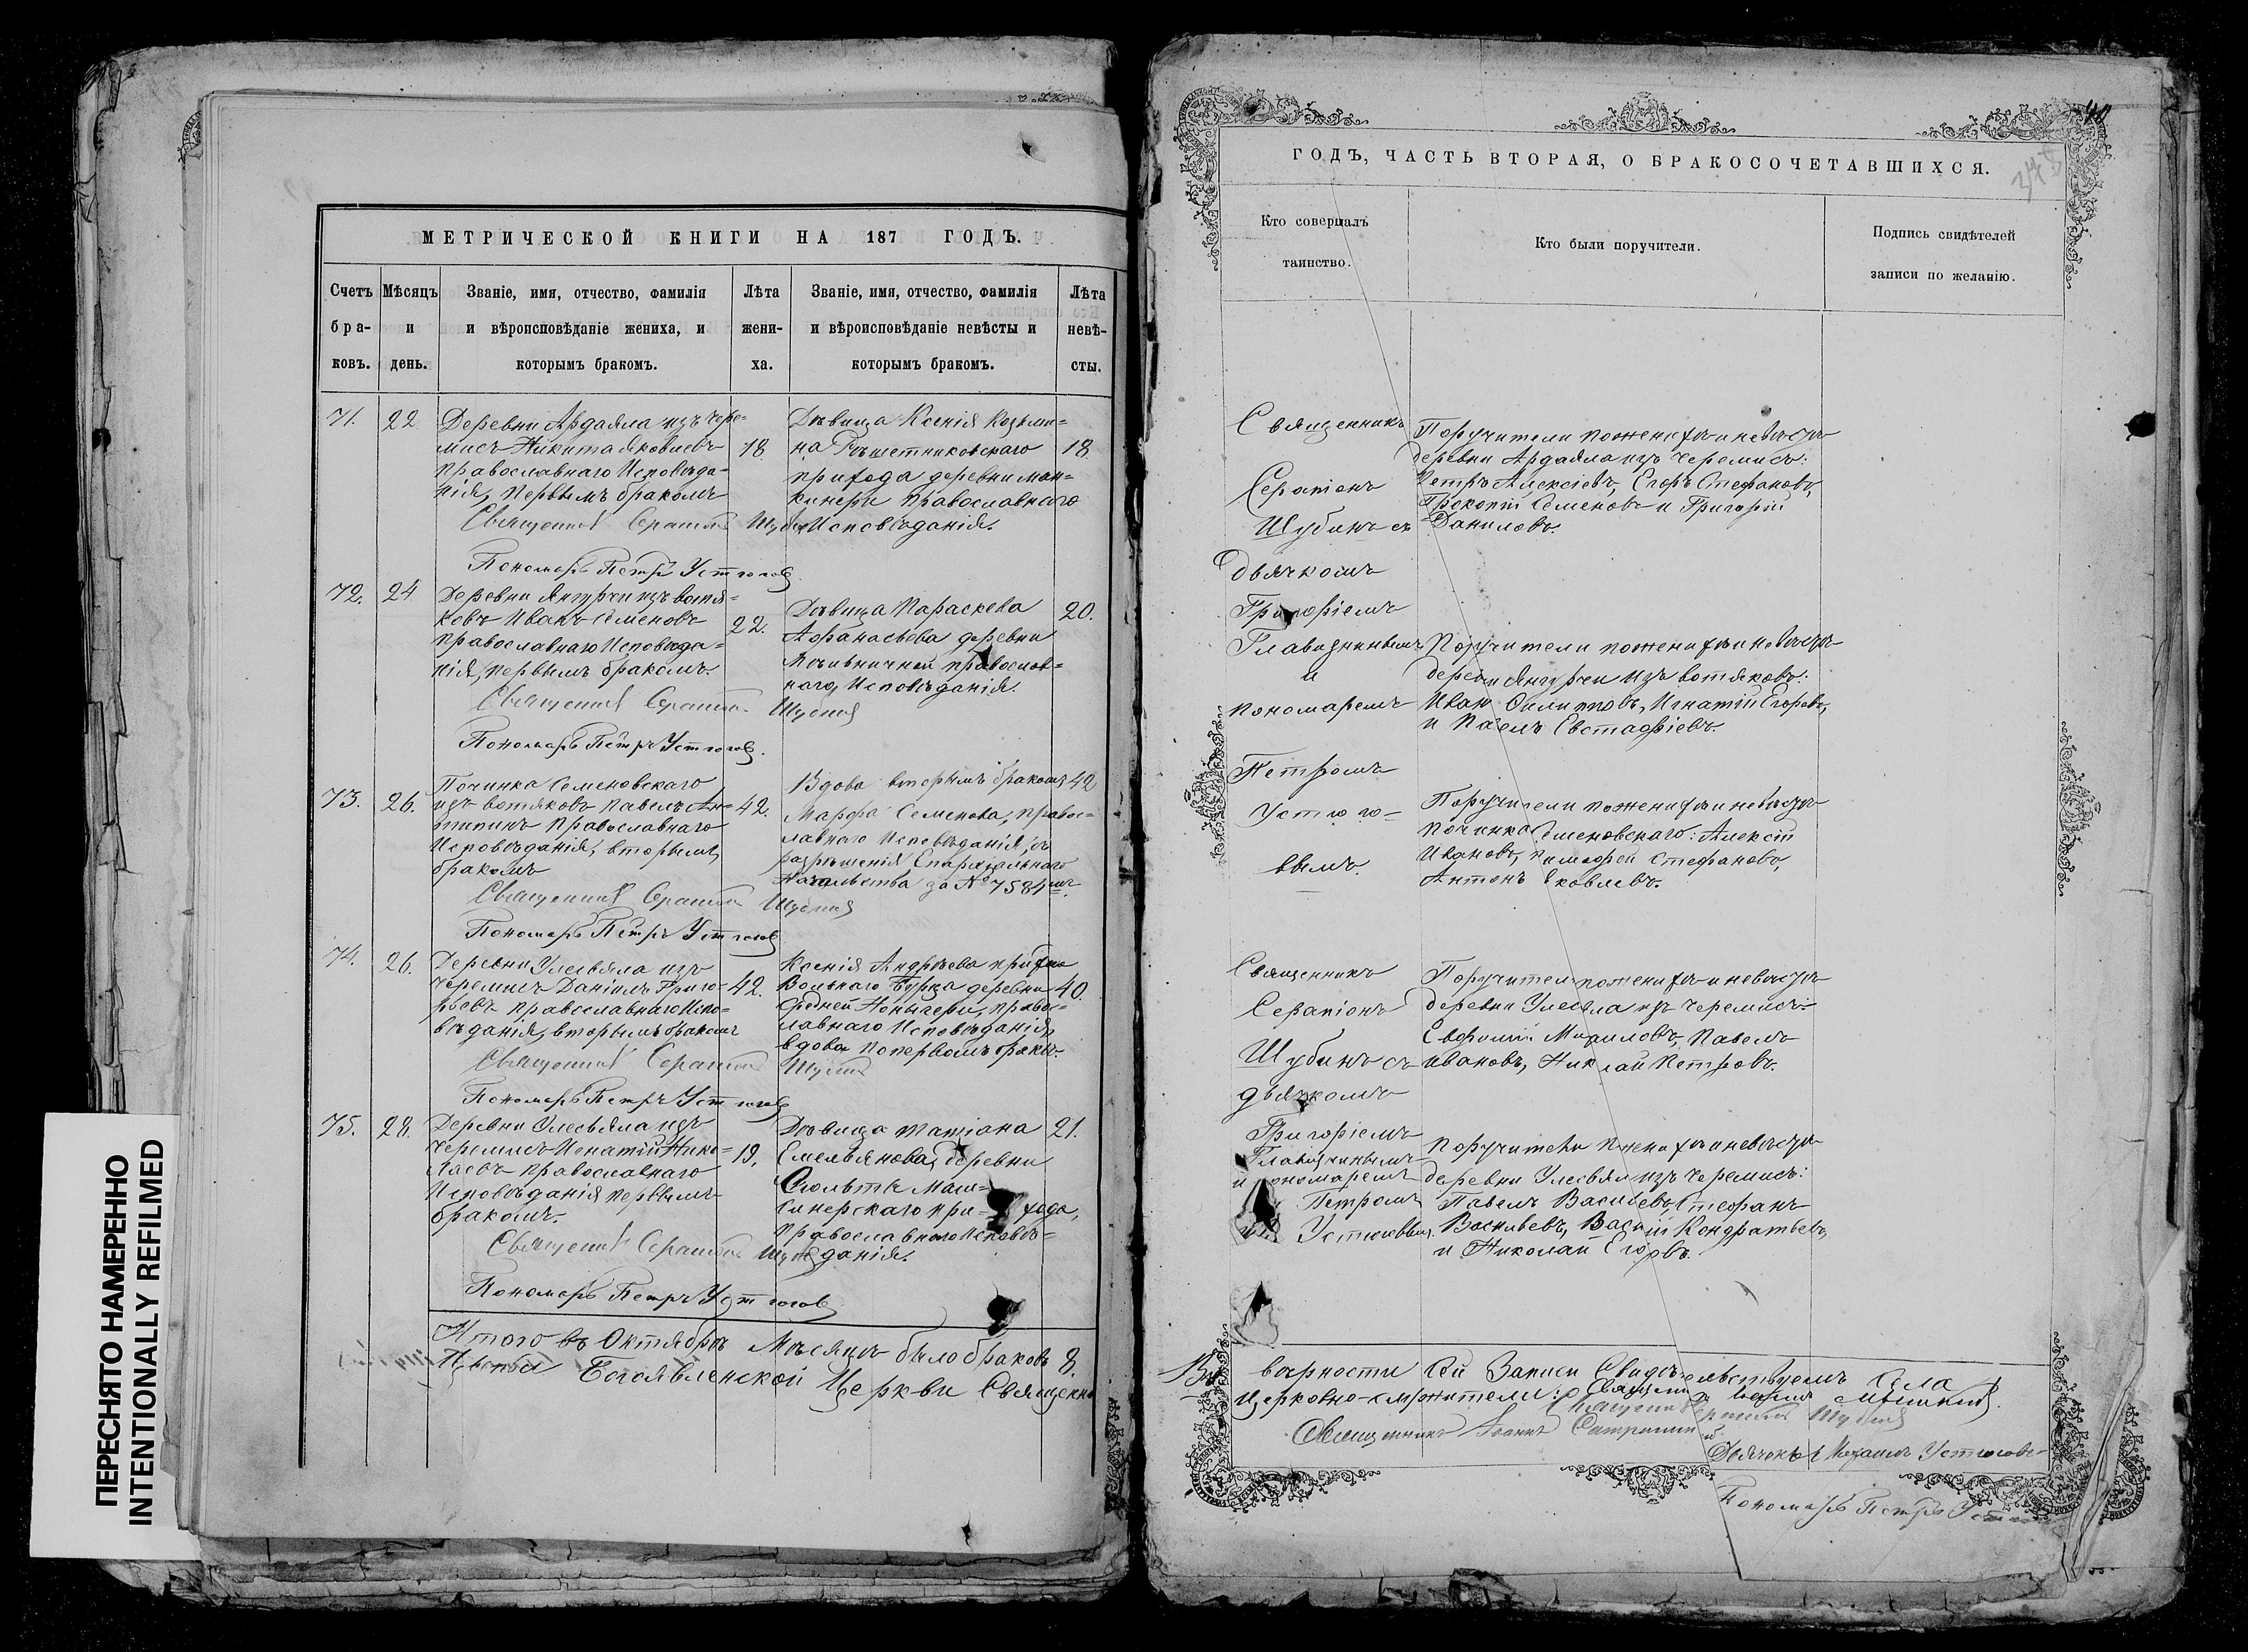 МЕТРИЧЕСКОЙ КНИГИ НА 187 ГОДЪ.
Счетъ бра- ковъ.
Мѣсяцъ и день.
Званіе, имя, отчество, фамилія
и вѣроисповѣданіе жениха, и
которымъ бракомъ.
Лѣта жени- ха.
Званіе, имя, отчество, фамилія
и вѣроисповѣданіе невѣсты и
которымъ бракомъ.
Лѣта невѣ- сты.
71. 22
Деревни Ардаяла изъ чере=
мисъ Никита Яковлевъ
православнаго Исповѣда=
нія, первымъ бракомъ
18
Дѣвица Ксенія Козьми=
на Рѣшетниковскаго
прихода деревни Ман=
кинери православнаго
Исповѣданія.
18
Священникъ Серапіонъ Шубинъ
Пономарь Петръ Устюговъ
72. 24
Деревни Янгурчи изъ вотя=
ковъ Иванъ Семеновъ
православнаго Исповѣда=
нія, первымъ бракомъ.
22.
Дѣвица Параскева
Афанасьева деревни
православ=
наго, Исповѣданія.
20.
Священникъ Серапіонъ Шубинъ
Пономарь Петръ Устюговъ.
73. 26.
Починка Семеновскаго
изъ вотяковъ Павелъ Ан=
типинъ православнаго
Исповѣданія, вторымъ
бракомъ
42.
Вдова вторымъ бракомъ
Марфа Семенова, право=
славнаго Исповѣданія, съ
разрѣшенія Епархіальнаго
Начальства за № 7584мъ.
42
Священникъ Серапіонъ Шубинъ
Пономарь Петръ Устюговъ
74. 26.
Деревни Улесьяла изъ
черемисъ Даніилъ Григо=
рьевъ православнаго Испо=
вѣданія, вторымъ бракомъ
42.
Ксенія Андрѣева прихода
Вольнаго Бурца деревни
Средней православнаго Исповѣданія,
вдова по первомъ бракѣ.
40.
Священникъ Серапіонъ Шубинъ
Пономарь Петръ Устюговъ
75. 28.
Деревни Улесьяла изъ
черемисъ Игнатій Нико=
лаевъ православнаго
Исповѣданія первымъ
бракомъ.
19.
Дѣвица Татіана
Емельянова, деревни
при хода,
православнаго Исповѣ=
данія.
21.
Священникъ Серапіонъ Шубинъ
Пономарь Петръ Устюговъ
Итого въ Октябрѣ Мѣсяцѣ было браковъ 8.
Богоявленской Церкви Священно
ГОДЪ, ЧАСТЬ ВТОРАЯ, О БРАКОСОЧЕТАВШИХСЯ.
348
Кто совершалъ
таинство.
Кто были поручители.
Подпись свидѣтелей
записи по желанію.
Священникъ
Серапіонъ
Шубинъ съ
Дьячкомъ
Григоріемъ
Главизнинымъ
и
пономаремъ
Петромъ
Устюго=
вымъ.
Поручители по женихѣ и невѣстѣ
деревни Ардаяла изъ черемисъ:
Петръ Алексѣевъ, Егоръ Стефановъ,
Прокопій Семеновъ и Григорій
Даниловъ.
Поручители по женихѣ и невѣстѣ
деревни Янгурчи изъ вотяковъ:
Иванъ Филипповъ, Игнатій Егоровъ,
и Павелъ Евстафіевъ.
Поручители по женихѣ и невѣстѣ
починка Семеновскаго: Алексѣй
Ивановъ, Тимофей Стефановъ,
Антонъ Яковлевъ.
Священникъ
Серапіонъ
Шубинъ съ
дьячкомъ
Григоріемъ
Главизнинымъ
и пономаремъ
Петромъ
Устюговымъ.
Поручители по женихѣ и невѣстѣ
деревни Улесьяла изъ черемисъ:
Михаиловъ, Павелъ
Ивановъ, Николай Петровъ.
Поручители по женихѣ и невѣстѣ
деревни Улесьяла изъ черемисъ:
Павелъ Васильевъ, Стефанъ
Васильевъ, Василій Кондратьевъ,
и Николай Егоровъ.
вѣрности сей Записи Свидѣтельствуемъ села
церковно-служители:
Священникъ Серапіонъ Шубинъ
Священникъ Іоаннъ
Дьячокъ Михаилъ Устюговъ
Пономарь Петръ
ПЕРЕСНЯТО НАМЕРЕННО
INTENTIONALLY REFILMED